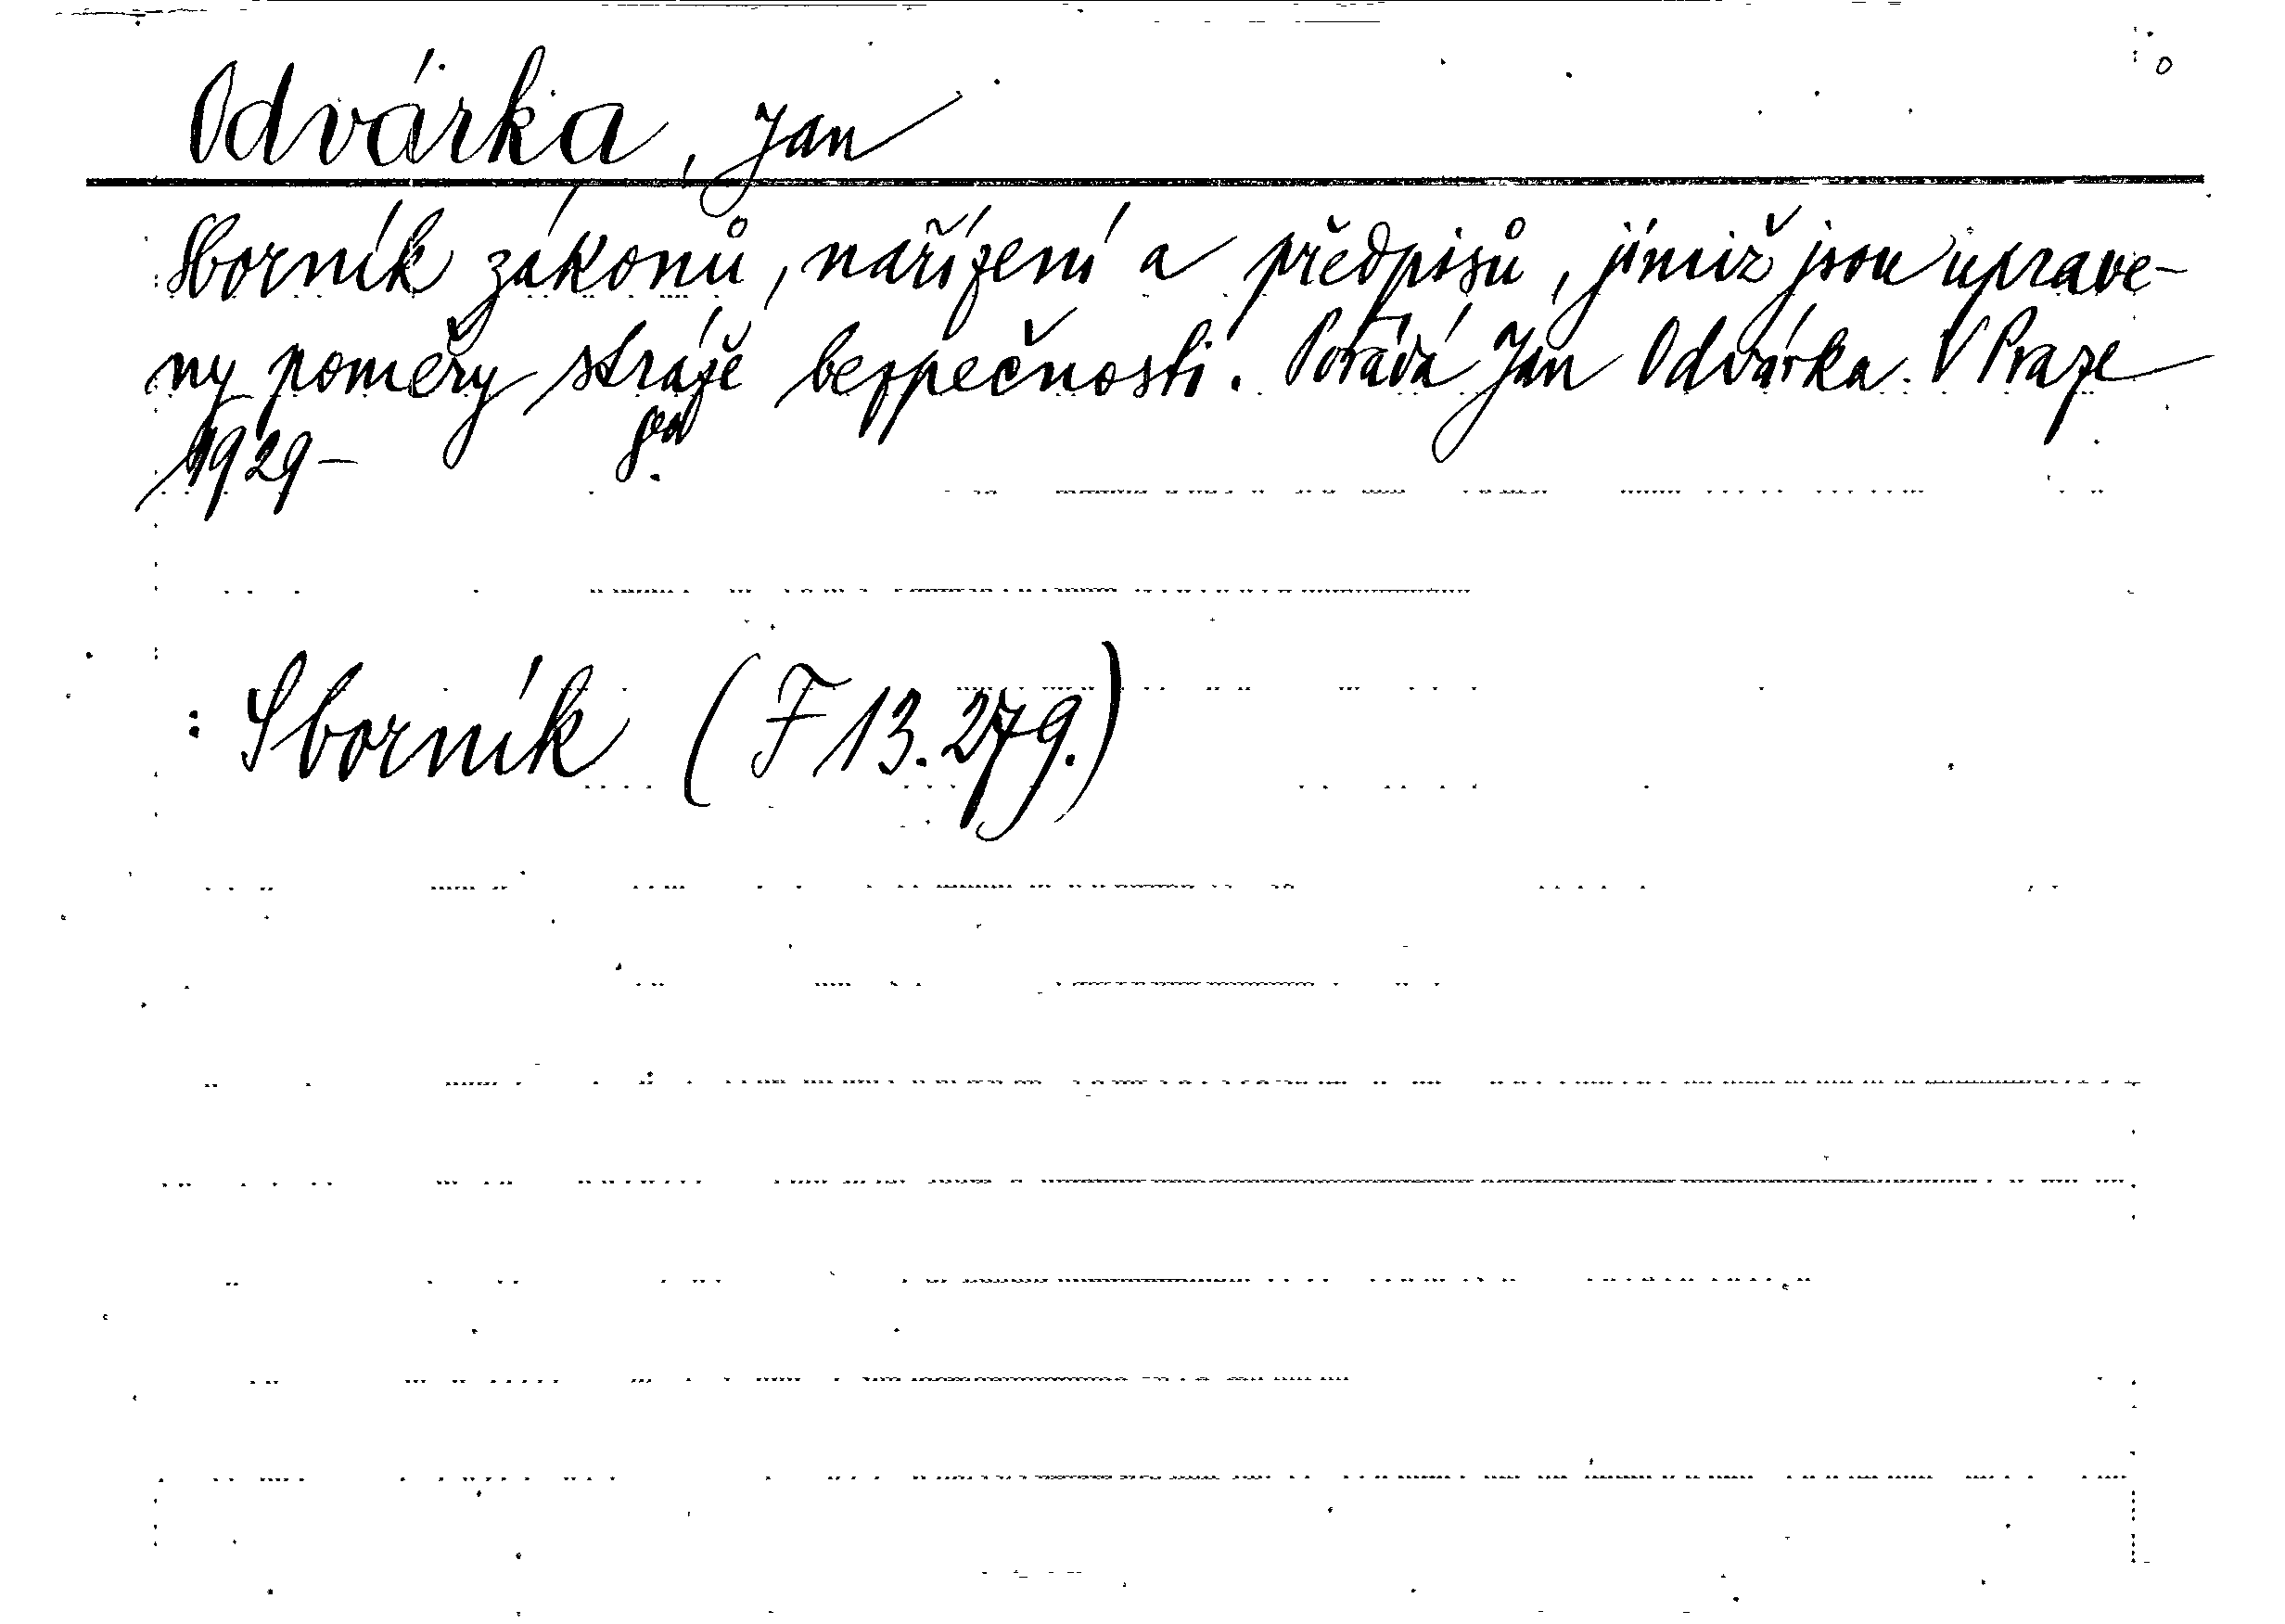 Odvárka, Jan
Sborník zákonů, nařízení a předpisů, jimiž jsou uprave-
ny poměry stráže bezpečnosti. Pořádá Jan Odvárka. V Praze
1929-
: Sborník (F 13.279.)